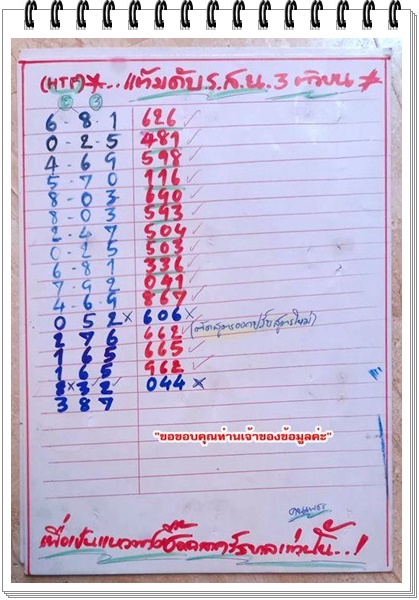 (HTP)*...แต้มดับ ร.ส.น. 3 ตัวบน *
E 3
6-8-1 626 ✓
0-2-5 481 ✓
4-6-9 598 ✓
5-7-0 116 ✓
8-0-3 690 ✓
8-0-3 593 ✓
2-4-7 504 ✓
0-2-5 503 ✓
6-8-1 336 ✓
7-9-2 091 ✓
4-6-9 867 ✓
0 5 2 x 606 x
2 7 6 662 (ตัดสูตรออกปรับสูตรใหม่)
1 6 5 665 ✓
1 6 5 962 ✓
044 x
3 8 7
"ขอขอบคุณท่านเจ้าของข้อมูลค่ะ"
เพื่อเป็นแนวทางซื้อสลากรัฐบาลเท่านั้น..!